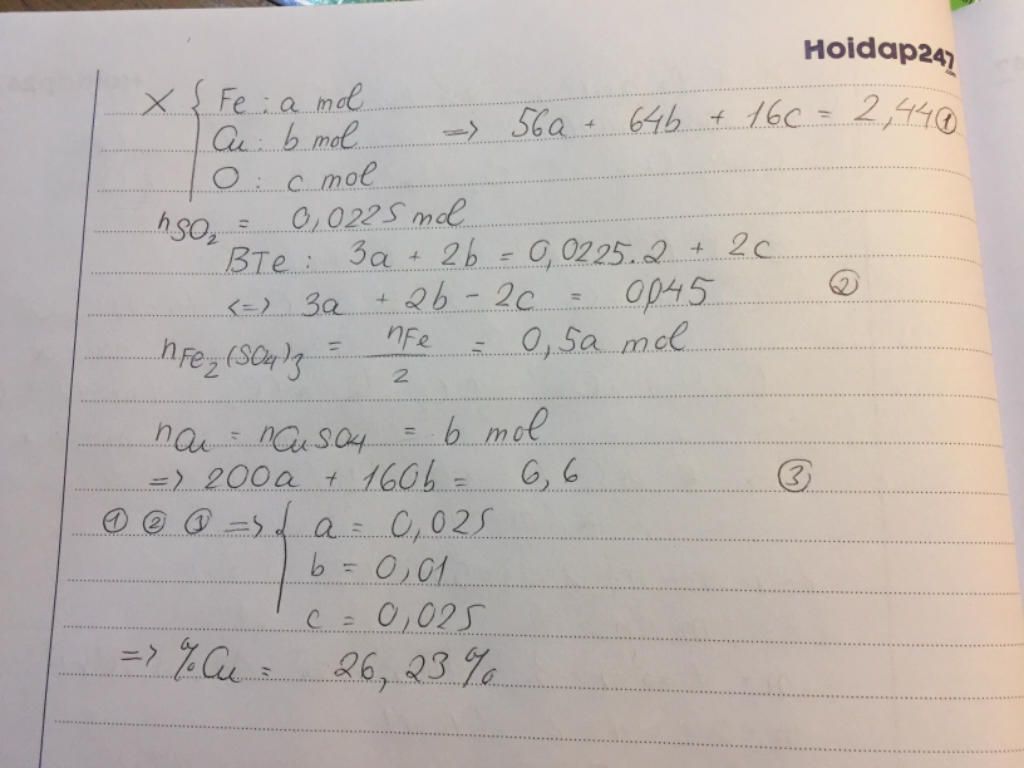 Hoidap247
X { Fe : a mol
Cu : b mol => 56a + 64b + 16c = 2,44 ①
O : c mol
nSO₂ = 0,0225 mol
BTe : 3a + 2b = 0,0225.2 + 2c
<=> 3a + 2b - 2c = 0,045 ②
nFe₂(SO₄)₃ = nFe/2 = 0,5a mol
nCu = nCuSO₄ = b mol
=> 200a + 160b = 6,6 ③
① ② ③ => { a = 0,025
b = 0,01
c = 0,025
=> %Cu = 26,23%